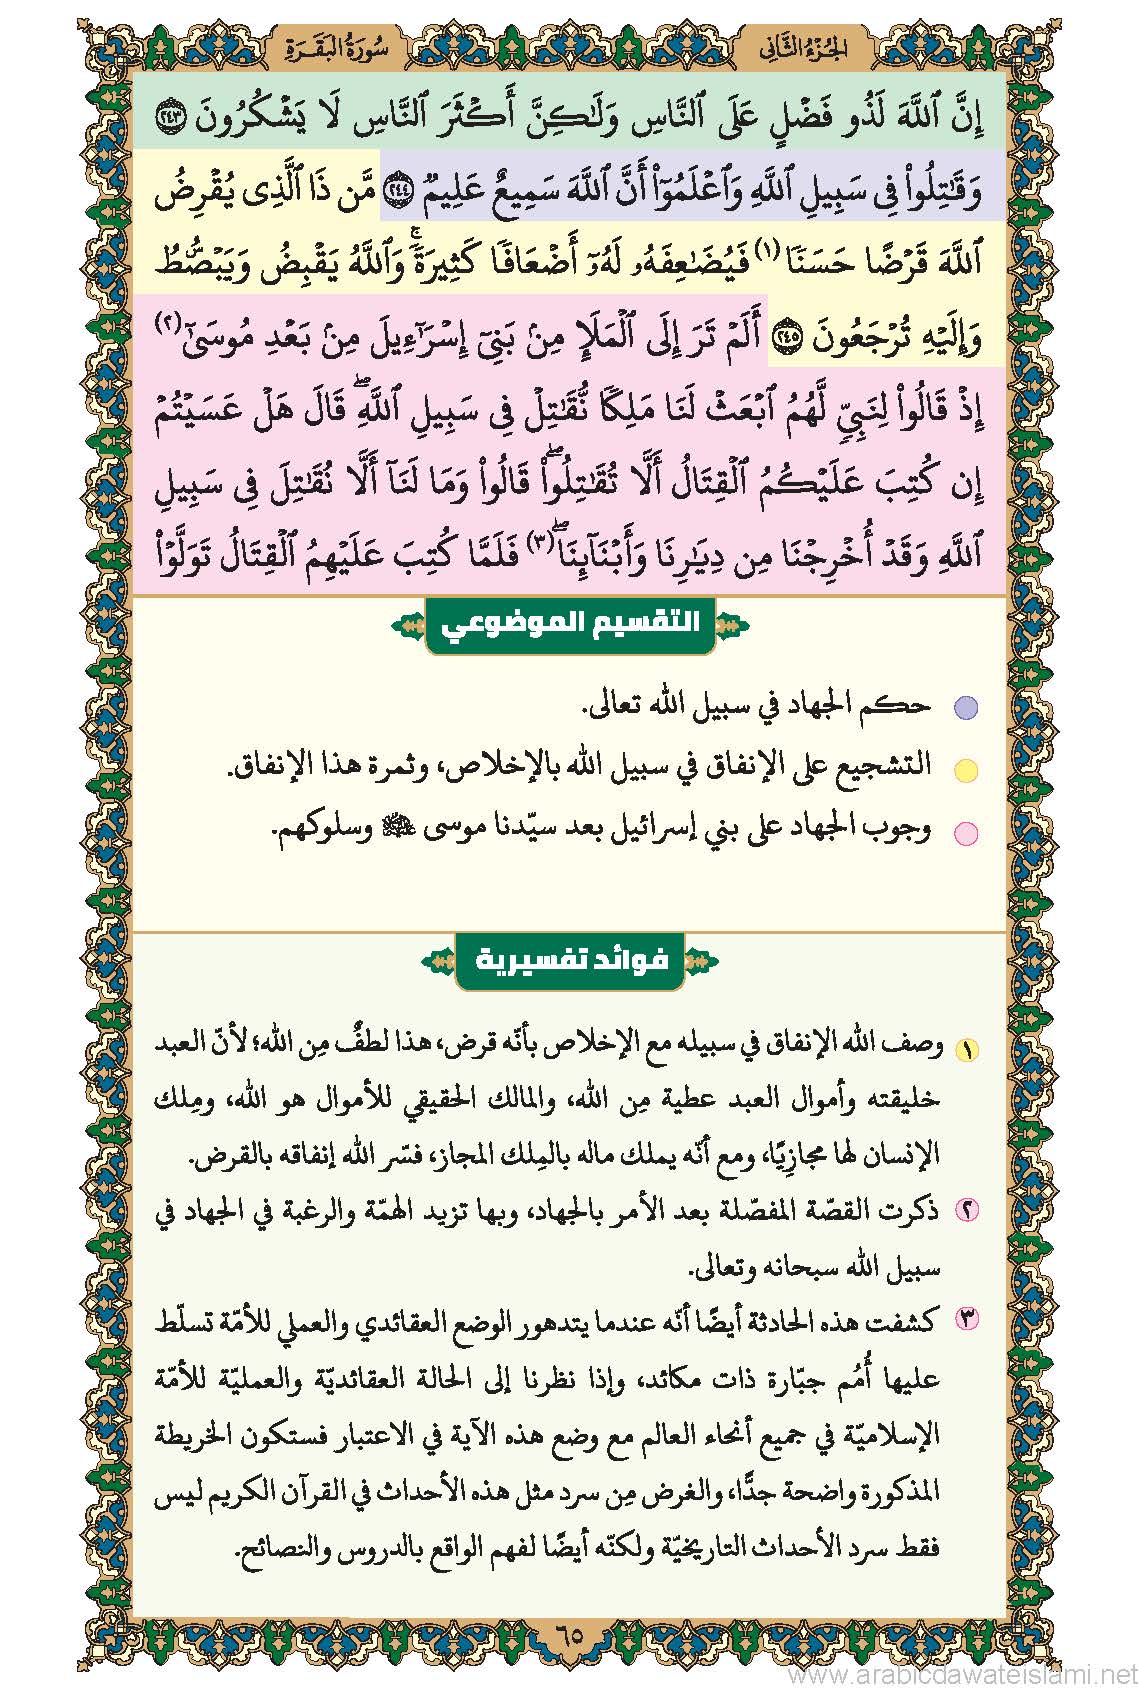 الجُزْءُ الثَّانِى
سُورَةُ البَقَرَةِ
إِنَّ ٱللَّهَ لَذُو فَضۡلٍ عَلَى ٱلنَّاسِ وَلَٰكِنَّ أَكۡثَرَ ٱلنَّاسِ لَا يَشۡكُرُونَ ﴿٢٤٣﴾
وَقَٰتِلُواْ فِى سَبِيلِ ٱللَّهِ وَٱعۡلَمُوٓاْ أَنَّ ٱللَّهَ سَمِيعٌ عَلِيمٌ ﴿٢٤٤﴾ مَّن ذَا ٱلَّذِى يُقۡرِضُ
ٱللَّهَ قَرۡضًا حَسَنٗا (١) فَيُضَٰعِفَهُۥ لَهُۥٓ أَضۡعَافٗا كَثِيرَةٗۚ وَٱللَّهُ يَقۡبِضُ وَيَبۡصُۜطُ
وَإِلَيۡهِ تُرۡجَعُونَ ﴿٢٤٥﴾ أَلَمۡ تَرَ إِلَى ٱلۡمَلَإِ مِنۢ بَنِىٓ إِسۡرَٰٓءِيلَ مِنۢ بَعۡدِ مُوسَىٰٓ (٢)
إِذۡ قَالُواْ لِنَبِىّٖ لَّهُمُ ٱبۡعَثۡ لَنَا مَلِكٗا نُّقَٰتِلۡ فِى سَبِيلِ ٱللَّهِۖ قَالَ هَلۡ عَسَيۡتُمۡ
إِن كُتِبَ عَلَيۡكُمُ ٱلۡقِتَالُ أَلَّا تُقَٰتِلُواْۖ قَالُواْ وَمَا لَنَآ أَلَّا نُقَٰتِلَ فِى سَبِيلِ
ٱللَّهِ وَقَدۡ أُخۡرِجۡنَا مِن دِيَٰرِنَا وَأَبۡنَآئِنَاۖ (٣) فَلَمَّا كُتِبَ عَلَيۡهِمُ ٱلۡقِتَالُ تَوَلَّوۡاْ
التقسيم الموضوعي
حكم الجهاد في سبيل الله تعالى.
التشجيع على الإنفاق في سبيل الله بالإخلاص، وثمرة هذا الإنفاق.
وجوب الجهاد على بني إسرائيل بعد سيّدنا موسى ﷺ وسلوكهم.
فوائد تفسيرية
١ وصف الله الإنفاق في سبيله مع الإخلاص بأنّه قرض، هذا لطفٌ مِن الله؛ لأنّ العبد
خليقته وأموال العبد عطية مِن الله، والمالك الحقيقي للأموال هو الله، ومِلك
الإنسان لها مجازِيًا، ومع أنّه يملك ماله بالمِلك المجاز، فسّر الله إنفاقه بالقرض.
٢ ذكرت القصّة المفصّلة بعد الأمر بالجهاد، وبها تزيد الهمّة والرغبة في الجهاد في
سبيل الله سبحانه وتعالى.
٣ كشفت هذه الحادثة أيضًا أنّه عندما يتدهور الوضع العقائدي والعملي للأمّة تسلّط
عليها أُمُم جبّارة ذات مكائد، وإذا نظرنا إلى الحالة العقائديّة والعمليّة للأمّة
الإسلاميّة في جميع أنحاء العالم مع وضع هذه الآية في الاعتبار فستكون الخريطة
المذكورة واضحة جدًّا، والغرض مِن سرد مثل هذه الأحداث في القرآن الكريم ليس
فقط سرد الأحداث التاريخيّة ولكنّه أيضًا لفهم الواقع بالدروس والنصائح.
٦٥
www.arabicdawateislami.net